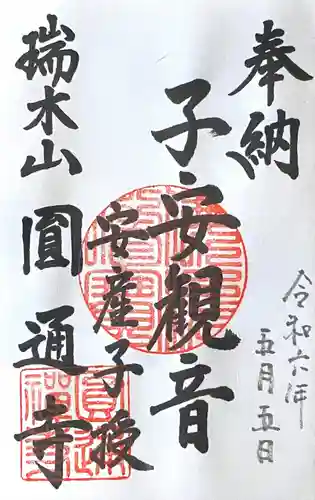 奉納
令和六年
五月五日
子安観音
安産子授
瑞木山
圓通寺